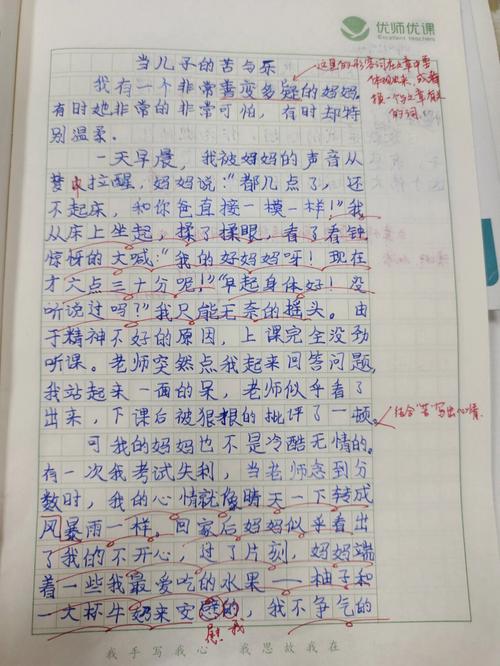 优师优课
Excellent teachers
当儿子的苦与乐
这里的形容词在文章中要
体现出来,或者
换一个与文章有关
的词
我有一个非常善变多疑的妈妈,
有时她非常的非常可怕,有时却特
别温柔。
一天早晨,我被妈妈的声音从
梦中拉醒,妈妈说:“都几点了,还
不起床,和你爸直接一模一样!”我
从床上坐起,揉了揉眼,看了看钟
惊伢的大喊:“我的好妈妈呀!现在
才六点三十分呢!”“早起身体好!没
听说过吗?”我只能无奈的摇头。由
于精神不好的原因,上课完全没劲
听课。老师突然点我起来回答问题,
我站起来一面的呆,老师似乎看了
出来,下课后被狠狠的批评了一顿。
结合“苦”写出心情
可我的妈妈也不是冷酷无情的。
有一次我考试失利,当老师念到分
数时,我的心情就像晴天一下转成
风暴雨一样。回家后妈妈似乎看出
了我的不开心;过了片刻,妈妈端
着一些我最爱吃的水果——柚子和
一大杯牛奶来安慰的,我不争气的
慰我
我手写我心 我思故我在